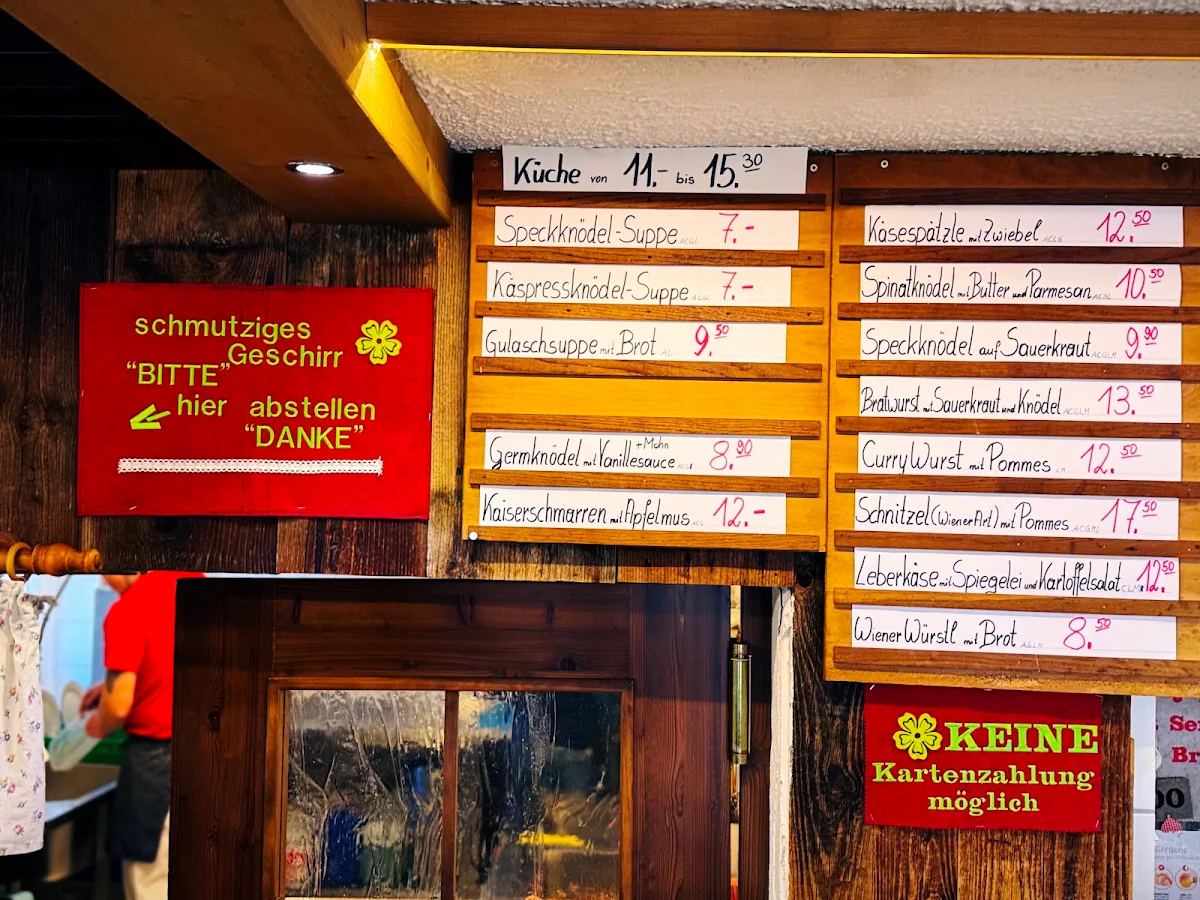 schmutziges
Geschirr
"BITTE"
hier abstellen
"DANKE"
Küche von 11.- bis 15.30
Speckknödel-Suppe 7.-
Käspressknödel-Suppe 7.-
Gulaschsuppe mit Brot 9.50
Germknödel mit Vanillesauce + Mohn 8.90
Kaiserschmarren mit Apfelmus 12.-
Käsespätzle mit Zwiebel 12.50
Spinatknödel mit Butter und Parmesan 10.50
Speckknödel auf Sauerkraut 9.90
Bratwurst mit Sauerkraut und Knödel 13.50
CurryWurst mit Pommes 12.50
Schnitzel (Wiener Art) mit Pommes 17.50
Leberkäse mit Spiegelei und Kartoffelsalat 12.50
Wiener Würstl mit Brot 8.50
KEINE
Kartenzahlung
möglich